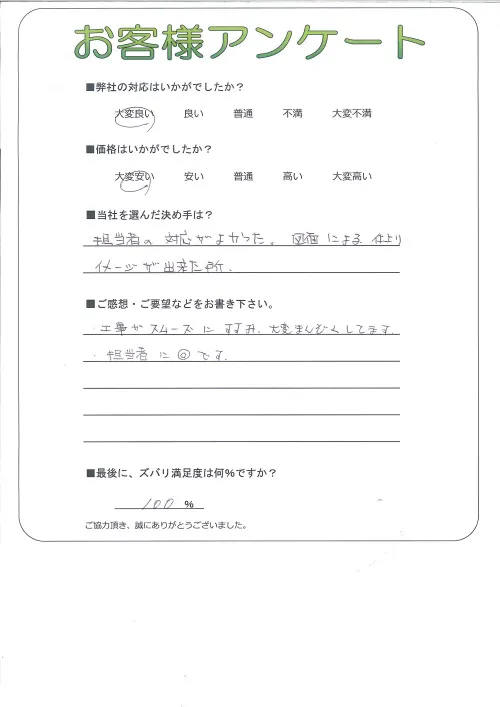 お客様アンケート
■弊社の対応はいかがでしたか？
大変良い 良い 普通 不満 大変不満
■価格はいかがでしたか？
大変安い 安い 普通 高い 大変高い
■当社を選んだ決め手は？
担当者の対応がよかった。図面による仕上り
イメージが出来た所。
■ご感想・ご要望などをお書き下さい。
・工事がスムーズにすすみ、大変まんぞくしてます。
・担当者に◎です。
■最後に、ズバリ満足度は何%ですか？
100 %
ご協力頂き、誠にありがとうございました。